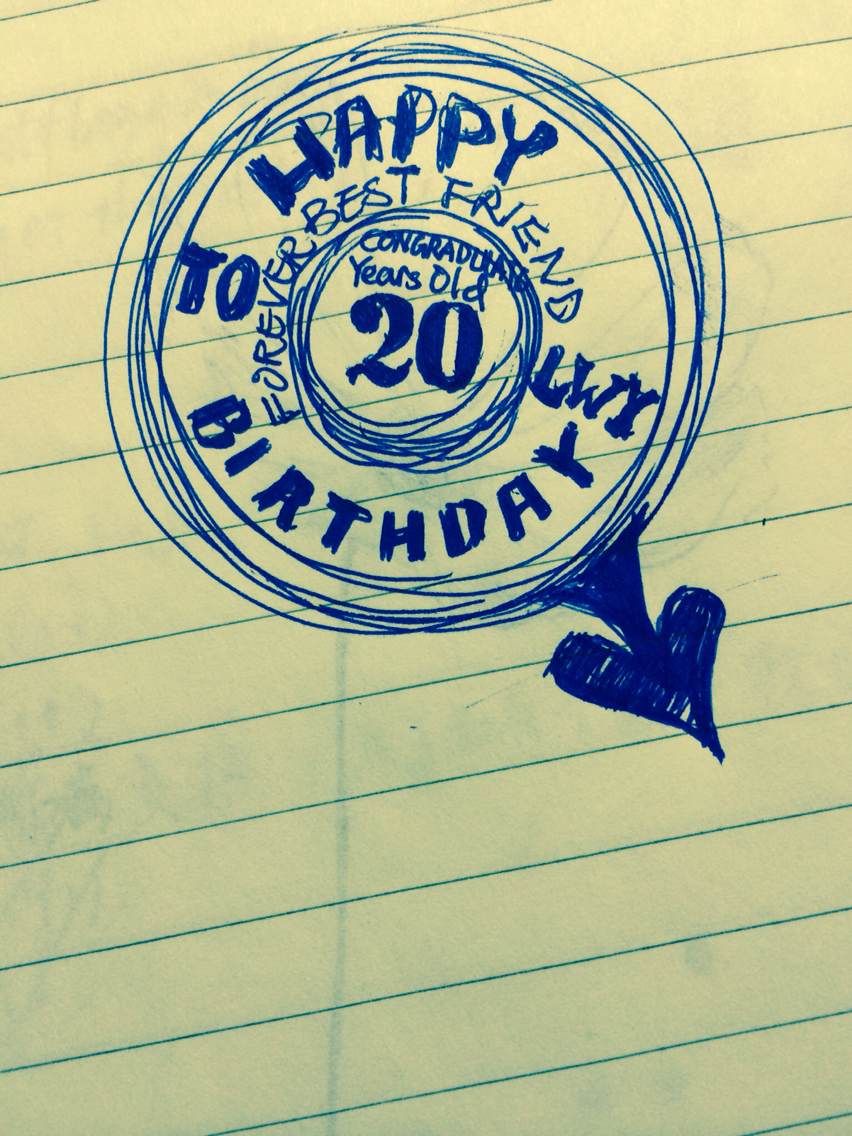 HAPPY
TO
BIRTHDAY
LWY
FOREVER BEST FRIEND
CONGRADUATE
Years Old
20